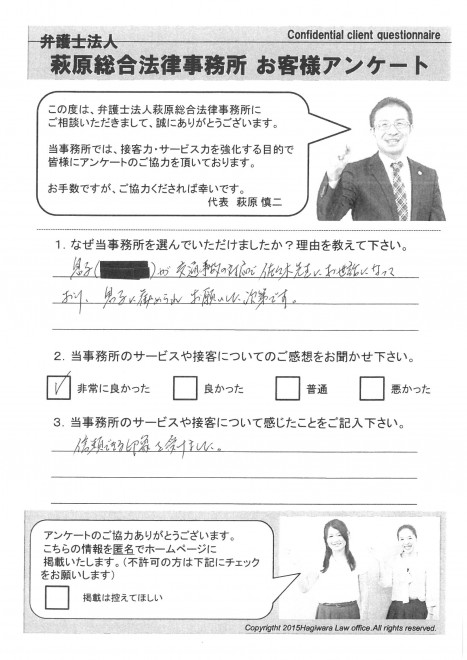 Confidential client questionnaire
弁護士法人
萩原総合法律事務所 お客様アンケート
この度は、弁護士法人萩原総合法律事務所に
ご相談いただきまして、誠にありがとうございます。
当事務所では、接客力・サービス力を強化する目的で
皆様にアンケートのご協力を頂いております。
お手数ですが、ご協力くだされば幸いです。
代表 萩原 慎二
1. なぜ当事務所を選んでいただけましたか？理由を教えて下さい。
息子( )が交通事故の対応で佐々木先生にお世話になって
おり、息子に薦められお願いした次第です。
2. 当事務所のサービスや接客についてのご感想をお聞かせ下さい。
非常に良かった 良かった 普通 悪かった
3. 当事務所のサービスや接客について感じたことをご記入下さい。
信頼できる印象を受けました。
アンケートのご協力ありがとうございます。
こちらの情報を匿名でホームページに
掲載いたします。(不許可の方は下記にチェック
をお願いします)
掲載は控えてほしい
Copyrigtht 2015Hagiwara Law office.All rights reserved.